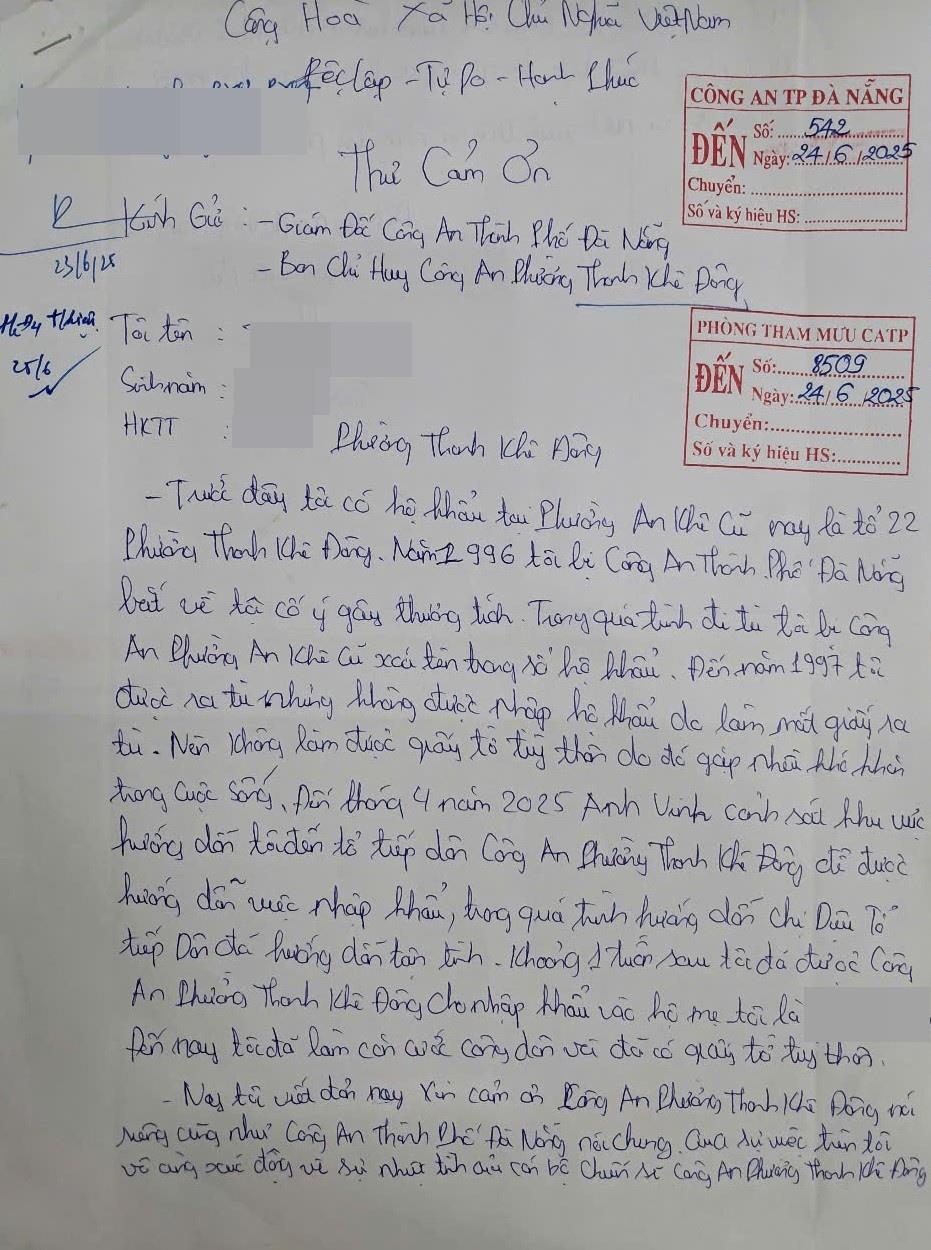 Cộng Hoà Xã Hội Chủ Nghĩa Việt Nam
Độc lập - Tự Do - Hạnh Phúc
CÔNG AN TP ĐÀ NẴNG
ĐẾN
Số: 542
Ngày: 24/6/2025
Chuyển:
Số và ký hiệu HS:
Thư Cảm Ơn
Kính Gửi : - Giám Đốc Công An Thành Phố Đà Nẵng
23/6/25
- Ban Chỉ Huy Công An Phường Thanh Khê Đông
PHÒNG THAM MƯU CATP
ĐẾN
Số: 8509
Ngày: 24/6/2025
Chuyển:
Số và ký hiệu HS:
Tôi tên :
25/6
Sinh năm :
HKTT :
Phường Thanh Khê Đông
- Trước đây tôi có hộ khẩu tại Phường An Khê Cũ nay là tổ 22
Phường Thanh Khê Đông. Năm 1996 tôi bị Công An Thành Phố Đà Nẵng
bắt về tội cố ý gây thương tích. Trong quá trình đi tù tôi bị Công
An Phường An Khê Cũ xoá tên trong sổ hộ khẩu. Đến năm 1997 tôi
được ra tù nhưng không được nhập hộ khẩu do làm mất giấy ra
tù. Nên không làm được giấy tờ tuỳ thân do đó gặp nhiều khó khăn
trong cuộc sống. Đến tháng 4 năm 2025 Anh Vinh cảnh sát khu vực
hướng dẫn tôi đến tổ tiếp dân Công An Phường Thanh Khê Đông để được
hướng dẫn việc nhập khẩu, trong quá trình hướng dẫn chị Diệu Tổ
tiếp Dân đã hướng dẫn tận tình. Khoảng 1 tuần sau tôi đã được Công
An Phường Thanh Khê Đông cho nhập khẩu vào hộ mẹ tôi là
Đến nay tôi đã làm căn cước công dân và đã có giấy tờ tuỳ thân.
- Nay tôi viết đơn này xin cảm ơn Công An Phường Thanh Khê Đông nói
riêng cũng như Công An Thành Phố Đà Nẵng nói chung. Qua sự việc trên tôi
vô cùng xúc động về sự nhiệt tình của cán bộ chiến sĩ Công An Phường Thanh Khê Đông